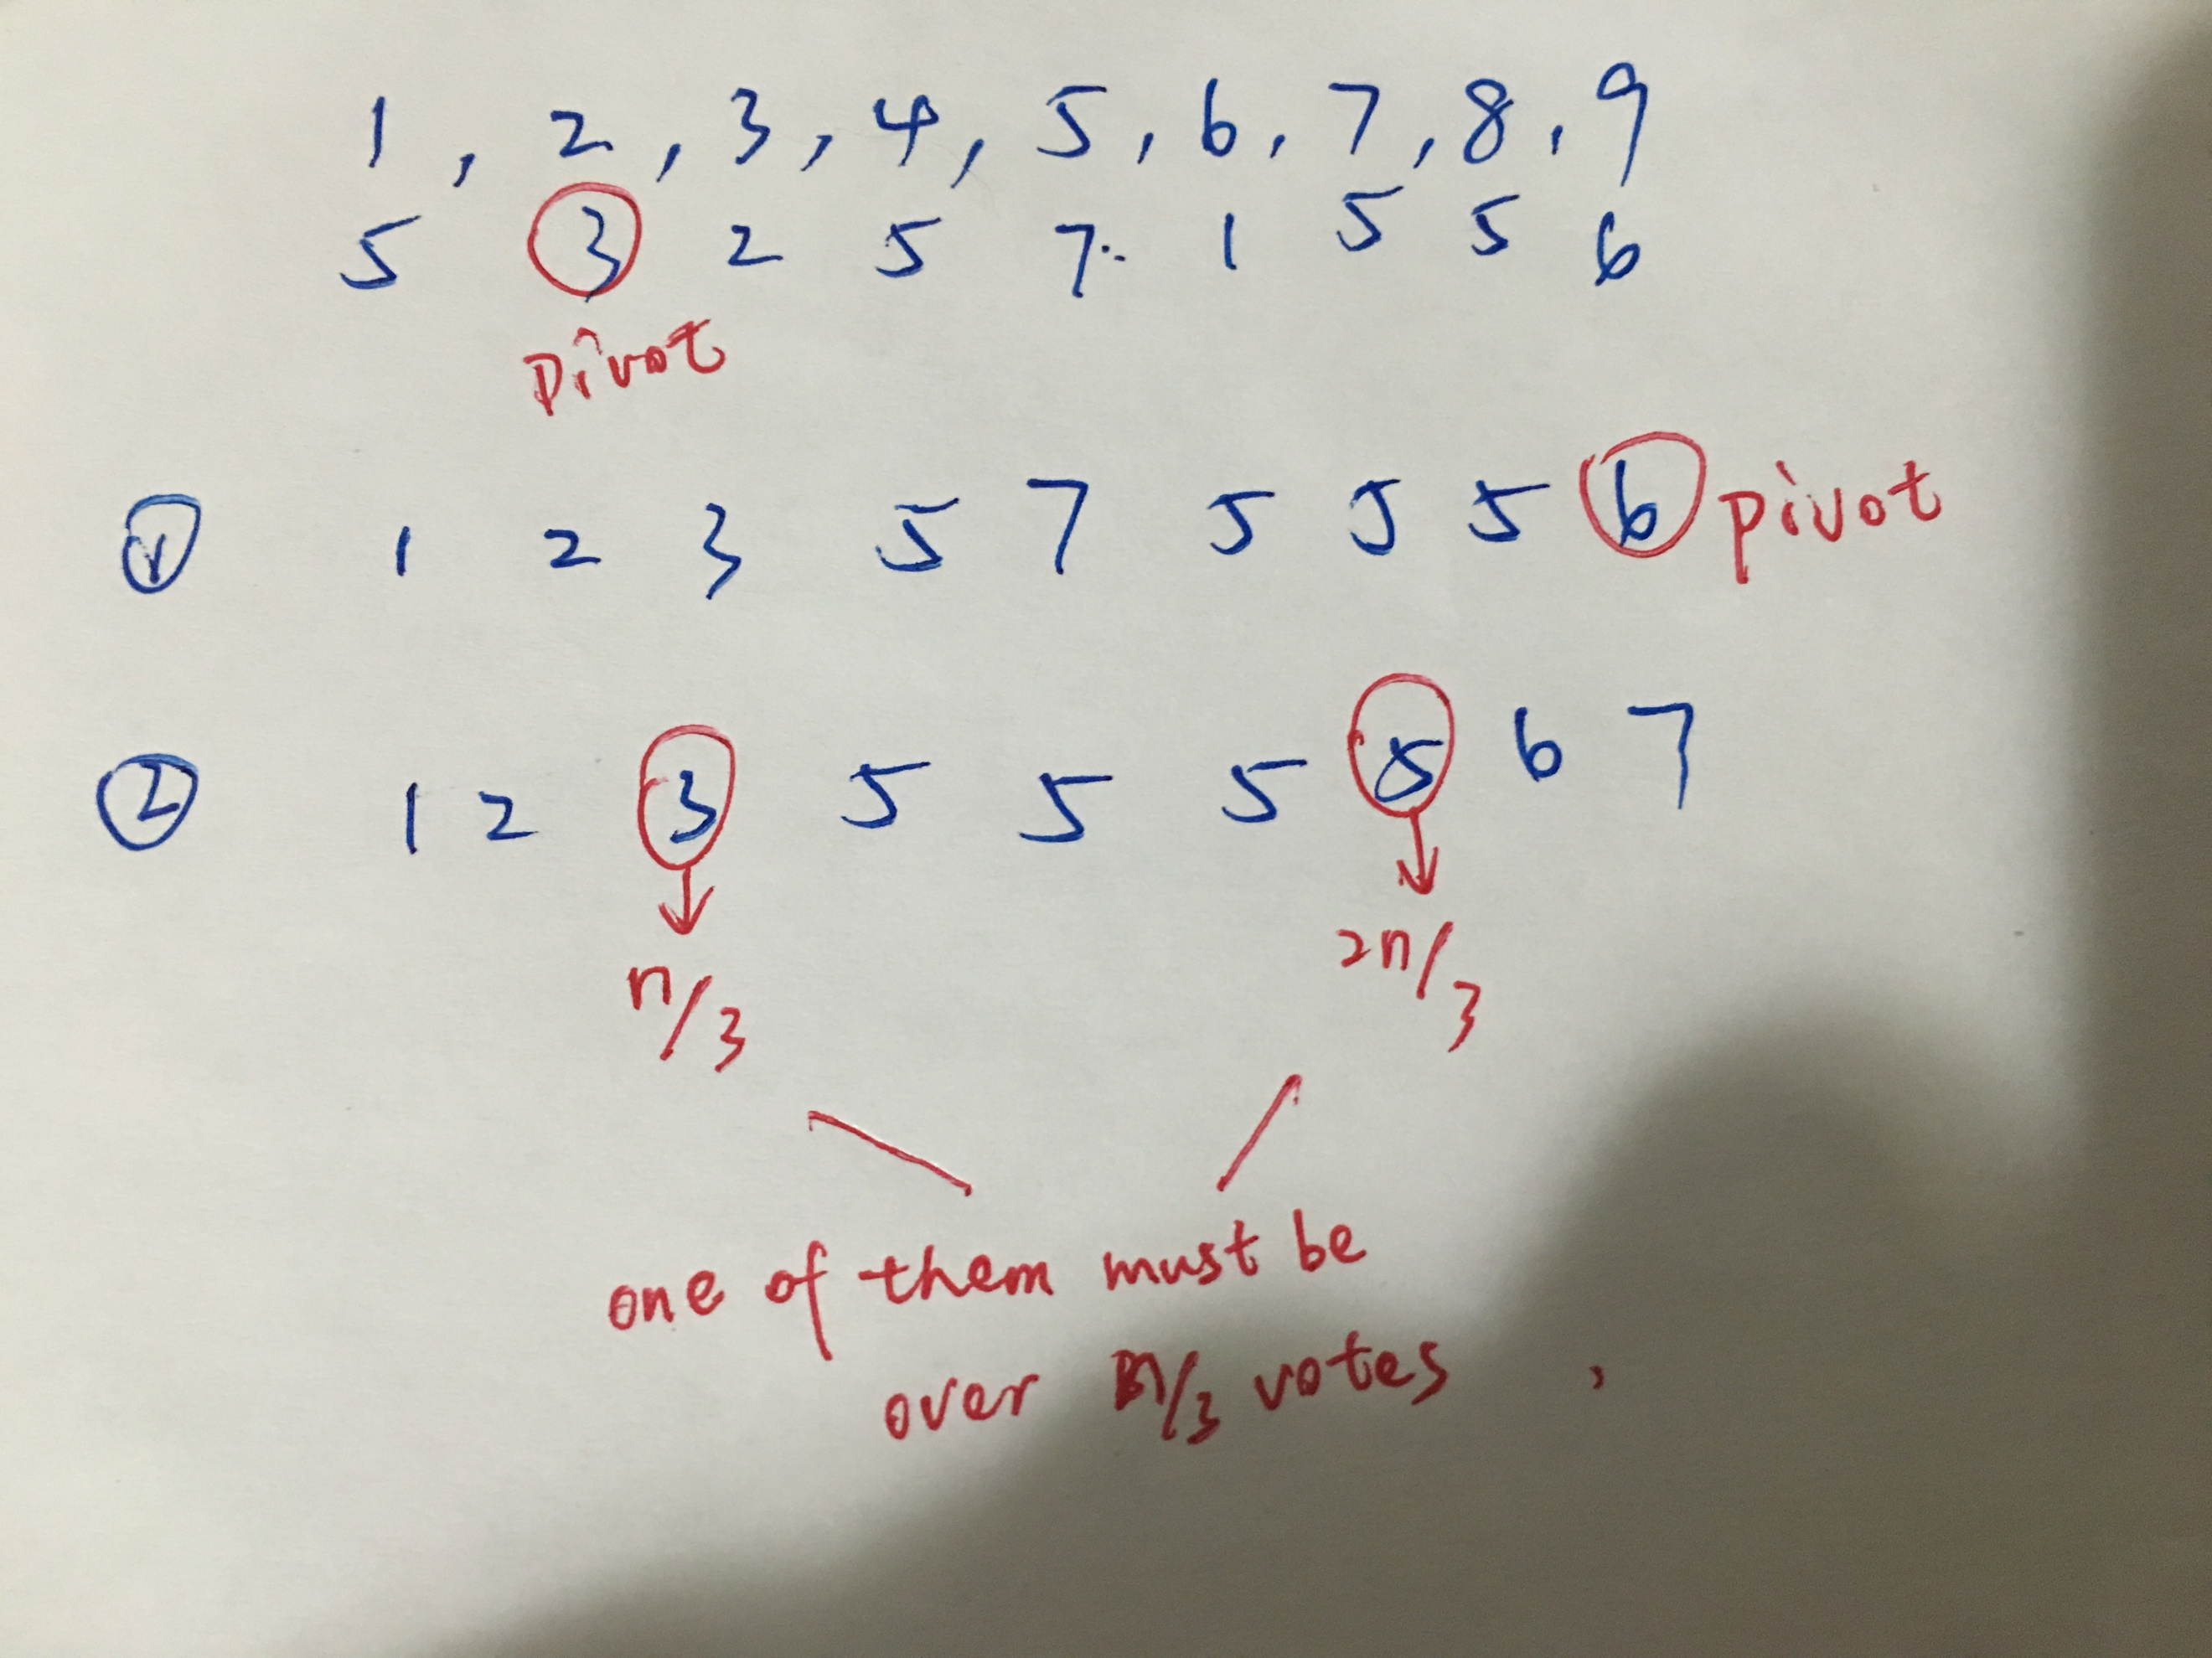 1 , 2 , 3 , 4 , 5 , 6 , 7 , 8 , 9
5 3 2 5 7 1 5 5 6
pivot
① 1 2 3 5 7 5 5 5 6 pivot
② 1 2 3 5 5 5 5 6 7
n/3 2n/3
one of them must be
over n/3 votes ,